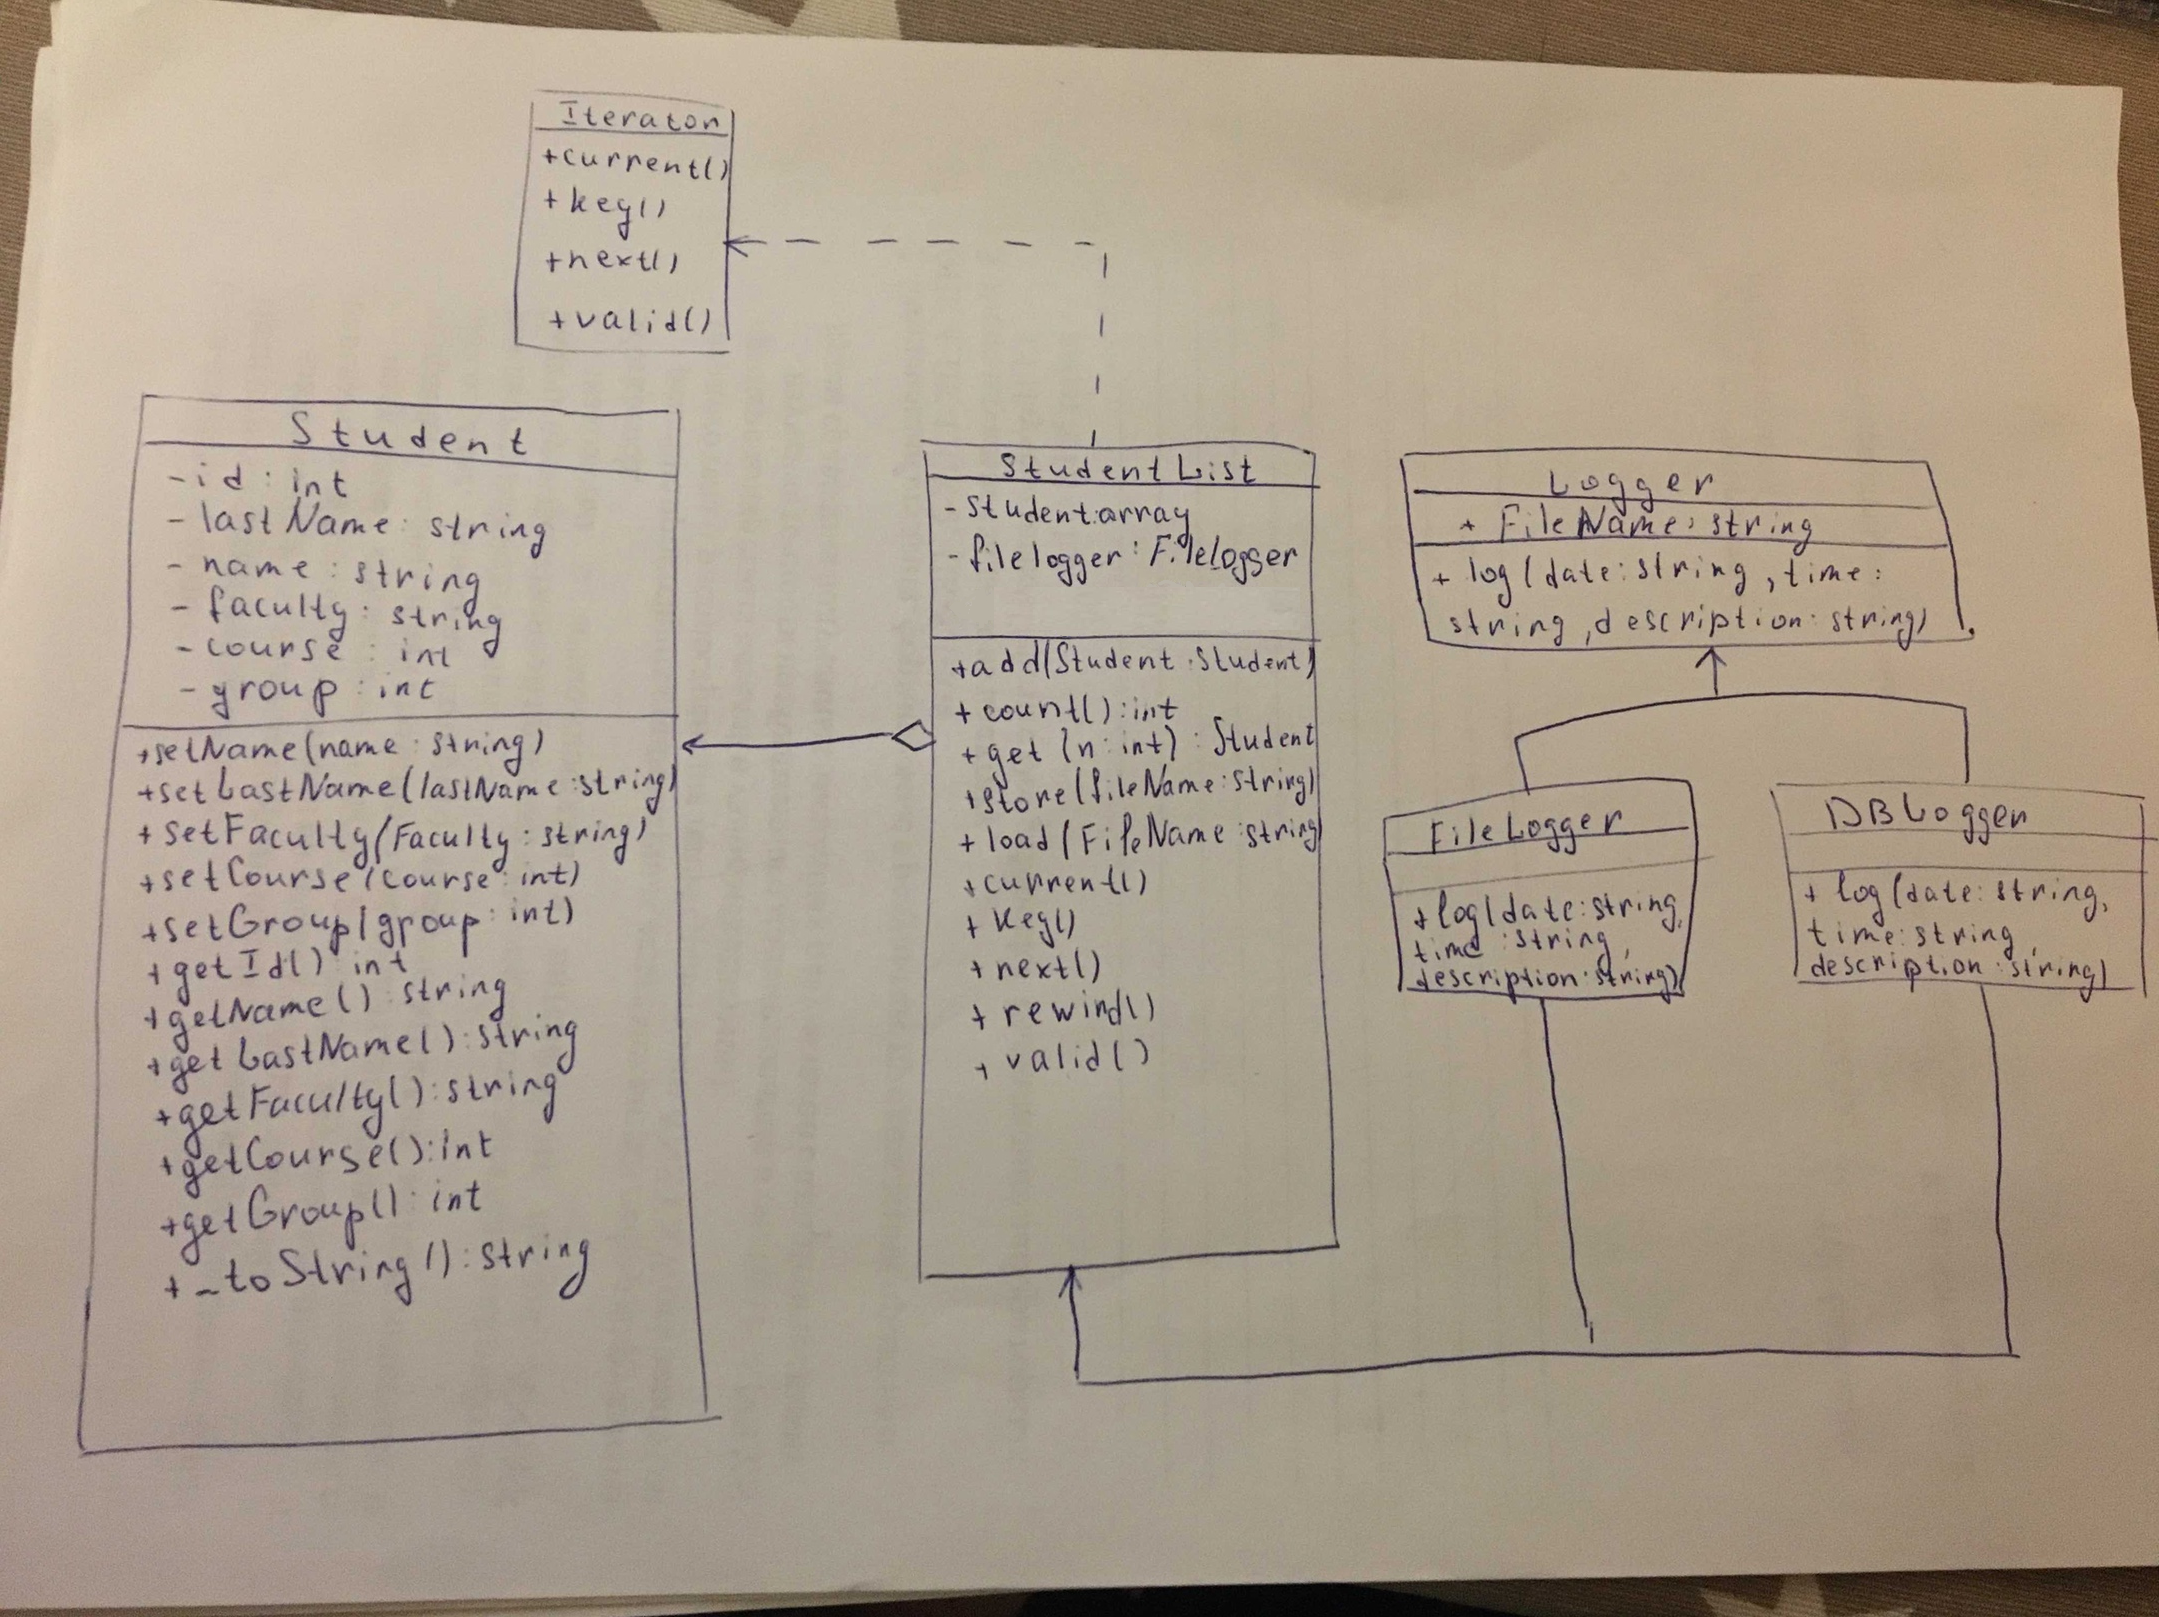 Iterator
+current()
+key()
+next()
+valid()
Student
-id: int
-lastName: string
-name: string
-faculty: string
-course: int
-group: int
+setName(name: string)
+setLastName(lastName: string)
+setFaculty(Faculty: string)
+setCourse(course: int)
+setGroup(group: int)
+getId(): int
+getName(): string
+getLastName(): string
+getFaculty(): string
+getCourse(): int
+getGroup(): int
+_toString(): string
StudentList
-student:array
-filelogger: Filelogger
+add(Student: Student)
+count(): int
+get(n: int): Student
+store(fileName: string)
+load(FileName: string)
+current()
+key()
+next()
+rewind()
+valid()
Logger
+ FileName: string
+ log(date: string, time:
string, description: string)
FileLogger
+ log(date: string,
time: string,
description: string)
DBLogger
+ log(date: string,
time: string,
description: string)